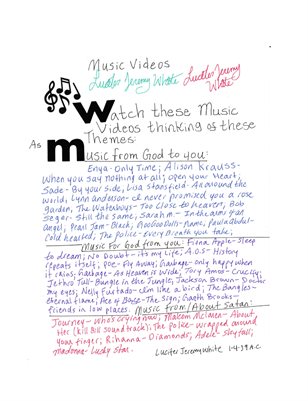 Music Videos
Lucifer Jeremy White Lucifer Jeremy White
Watch these Music
Videos thinking of these
As Themes:
Music from God to you:
Enya-Only Time; Alison Krauss-
When you say Nothing at all; open your Heart,
Sade-By your side, Lisa Stansfield-All around the
world, Lynn Anderson-I never promised you a rose
garden, The Waterboys-Too Close to Heaven, Bob
Seger-Still the same, Sarah M.-In the arms of an
angel, Pearl Jam-Black, Goo Goo Dolls-name, Paula Abdul-
Cold hearted, The police-Every Breath you take,
Music for God from you: Fiona Apple-Sleep
to dream; No Doubt-it's my Life; A.O.S-History
repeats itself; POE-Fly Away; Garbage-only happy when
it rains; Garbage-As Heaven is Wide; Tory Amos-Crucify;
Jethro Tull-Bungle in the Jungle; Jackson Brown-Doctor
my eyes; Nelly Furtado-I'm like a bird; The Bangles-
Eternal flame; Ace of Base-The Sign; Garth Brooks-
friends in low places. Music from/About Satan:
Journey-Who's Crying Now; Malcom Mclaren-About
Her (Kill Bill soundtrack); The Police-wrapped around
your finger; Rihanna-Diamonds; Adele-Skyfall;
madonna-Lucky Star. Lucifer Jeremy White 1-4-39 A.C.